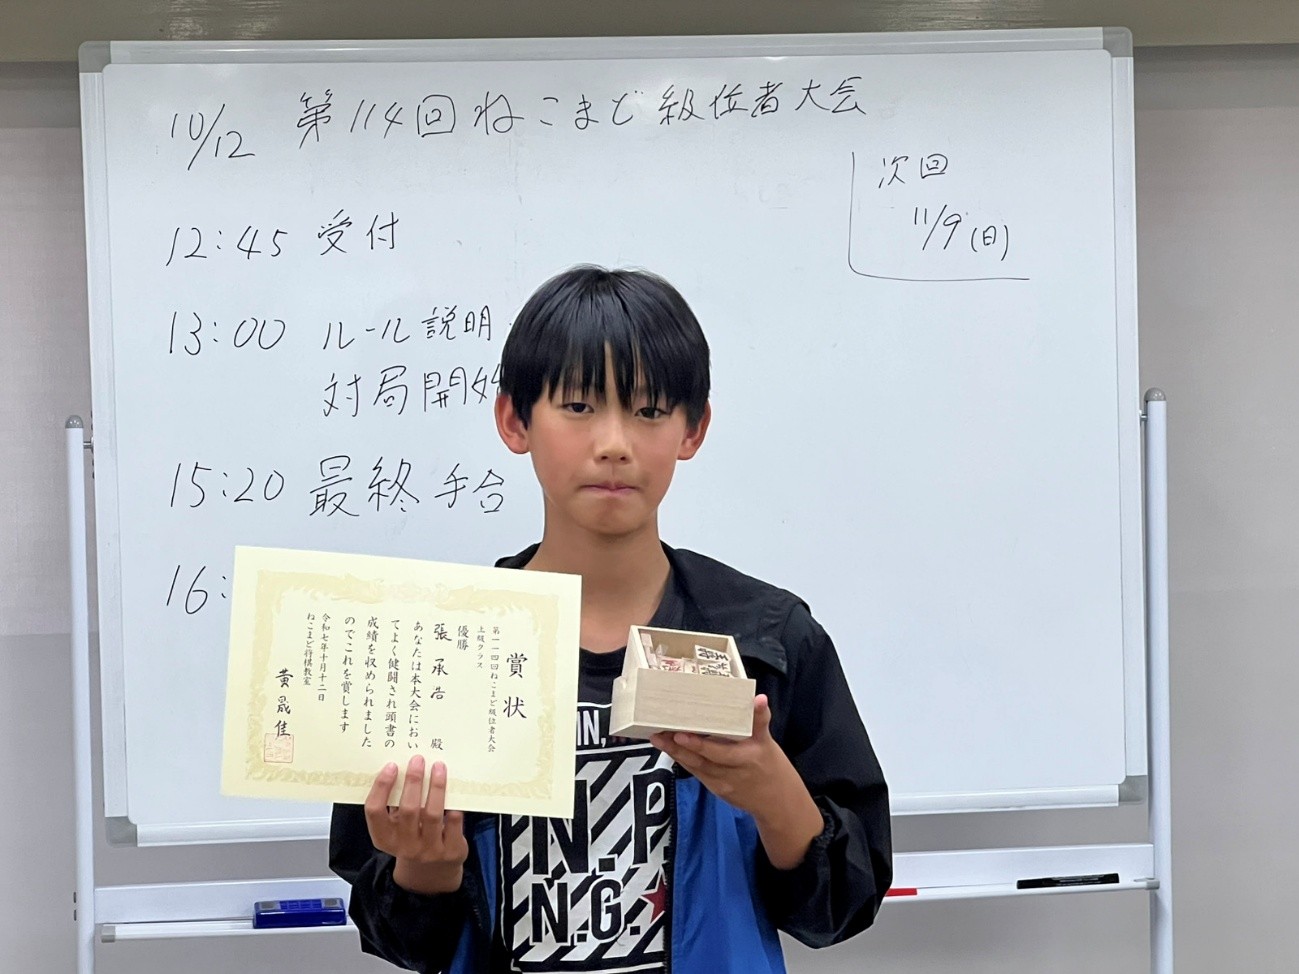 10/12 第114回ねこまど級位者大会
次回
11/9(日)
12:45 受付
13:00 ルール説明
対局開始
15:20 最終手合
16:
賞状
第一一四回ねこまど級位者大会
上級クラス
優勝
張承浩 殿
あなたは本大会におい
てよく健闘され頭書の
成績を収められました
のでこれを賞します
令和七年十月十二日
ねこまど将棋教室
黄晟佳
IN,
N.P
N.G.